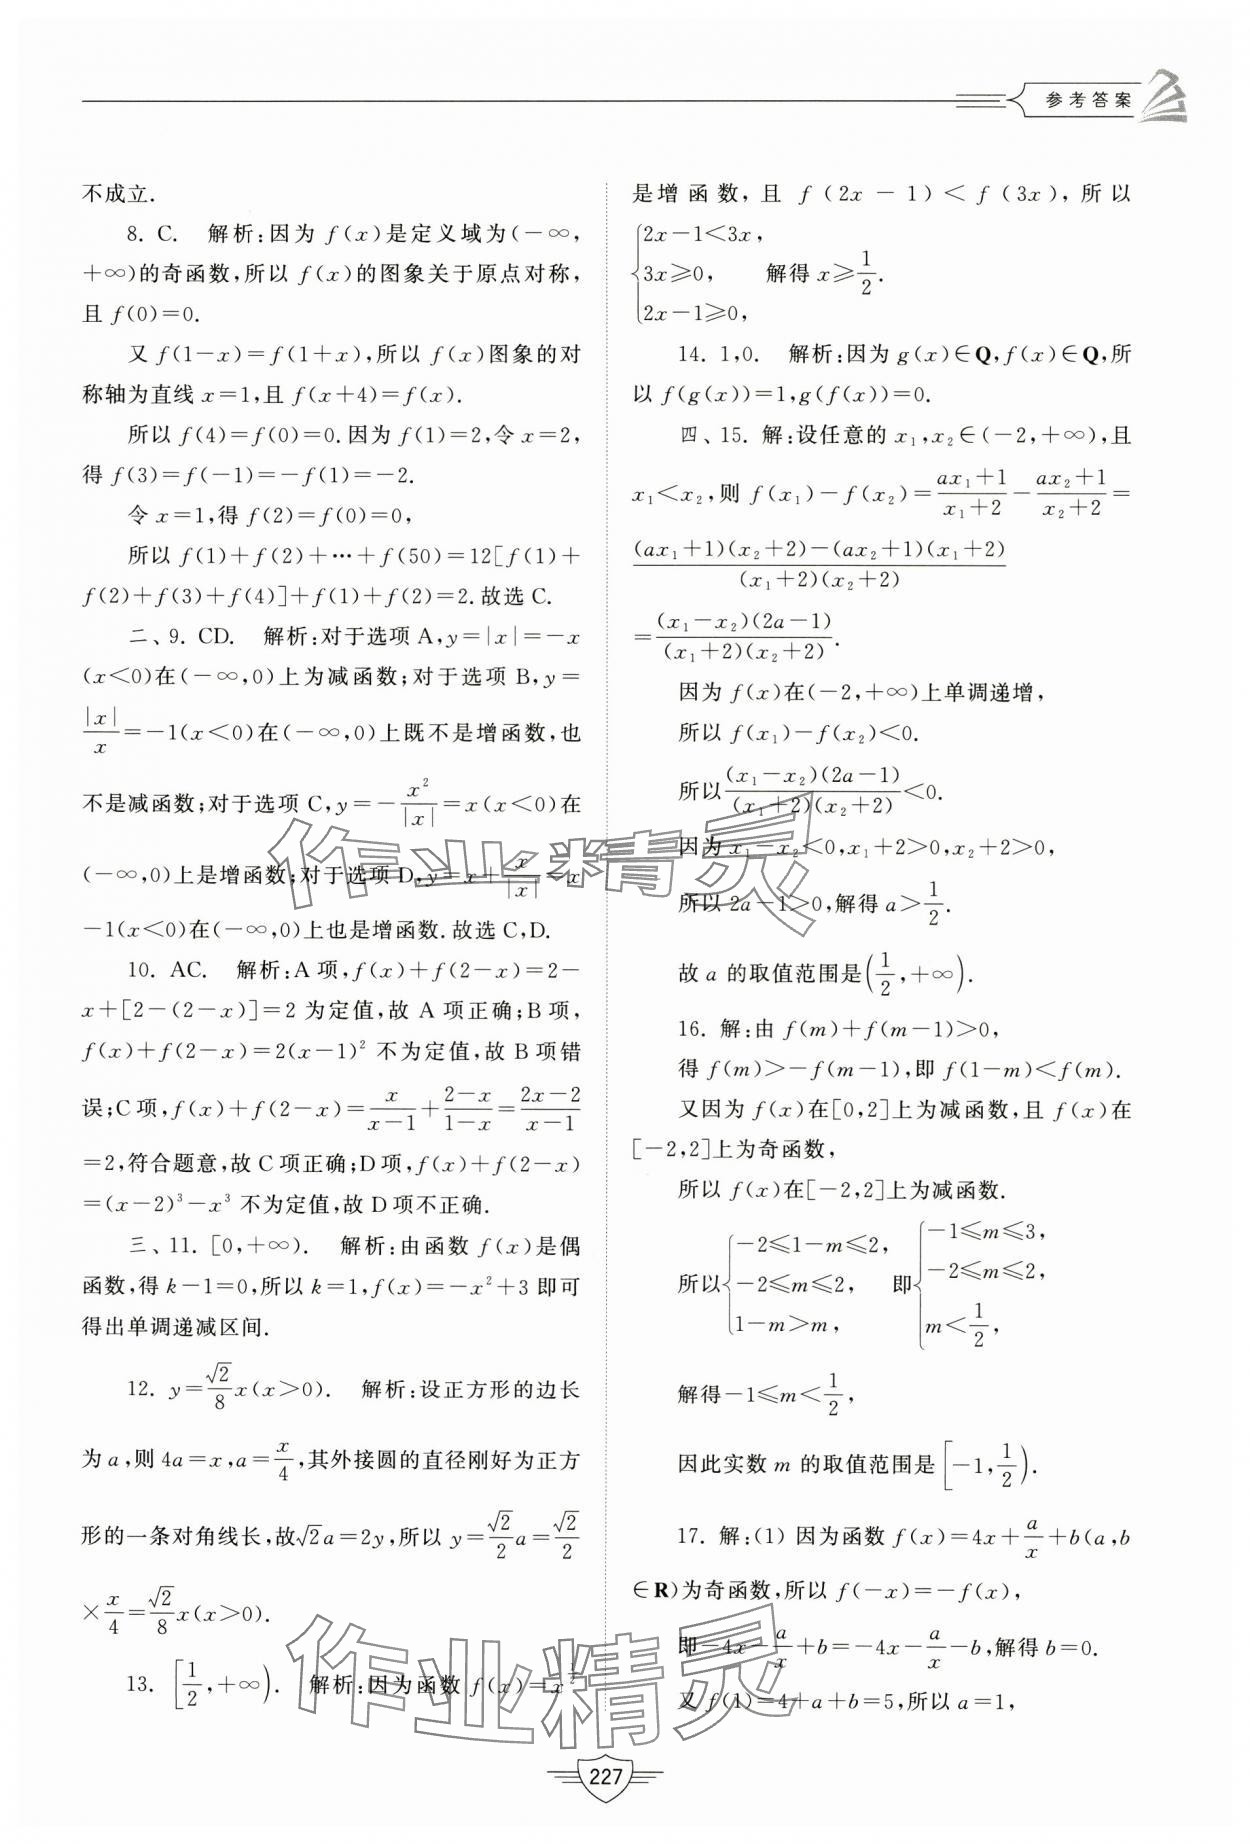 参考答案
不成立.
8. C.　解析:因为 f(x)是定义域为(－∞,
＋∞)的奇函数,所以 f(x)的图象关于原点对称,
且 f(0)=0.
又 f(1－x)=f(1+x),所以 f(x)图象的对
称轴为直线 x=1,且 f(x+4)=f(x).
所以 f(4)=f(0)=0.因为 f(1)=2,令 x=2,
得 f(3)=f(－1)=－f(1)=－2.
令 x=1,得 f(2)=f(0)=0,
所以 f(1)+f(2)+…+f(50)=12[f(1)+
f(2)+f(3)+f(4)]+f(1)+f(2)=2.故选 C.
二、9. CD.　解析:对于选项 A,y=|x|=－x
(x<0)在(－∞,0)上为减函数;对于选项 B,y=
|x|/x=－1(x<0)在(－∞,0)上既不是增函数,也
不是减函数;对于选项 C,y=－x²/|x|=x(x<0)在
(－∞,0)上是增函数;对于选项 D,y=x+x/|x|=x
－1(x<0)在(－∞,0)上也是增函数.故选 C,D.
10. AC.　解析:A 项,f(x)+f(2－x)=2－
x+[2－(2－x)]=2 为定值,故 A 项正确;B 项,
f(x)+f(2－x)=2(x－1)² 不为定值,故 B 项错
误;C 项,f(x)+f(2－x)=x/(x－1)+(2－x)/(1－x)=(2x－2)/(x－1)
=2,符合题意,故 C 项正确;D 项,f(x)+f(2－x)
=(x－2)³－x³ 不为定值,故 D 项不正确.
三、11. [0,+∞).　解析:由函数 f(x)是偶
函数,得 k－1=0,所以 k=1,f(x)=－x²+3 即可
得出单调递减区间.
12. y=√2/8x(x>0).　解析:设正方形的边长
为 a,则 4a=x,a=x/4,其外接圆的直径刚好为正方
形的一条对角线长,故√2a=2y,所以 y=√2/2a=√2/2
×x/4=√2/8x(x>0).
13. [1/2,+∞).　解析:因为函数 f(x)=x^(1/2)
是增函数,且 f(2x－1)<f(3x),所以
{2x－1<3x,
3x≥0,　解得 x≥1/2.
2x－1≥0,
14. 1,0.　解析:因为 g(x)∈Q,f(x)∈Q,所
以 f(g(x))=1,g(f(x))=0.
四、15. 解:设任意的 x₁,x₂∈(－2,+∞),且
x₁<x₂,则 f(x₁)－f(x₂)=(ax₁+1)/(x₁+2)－(ax₂+1)/(x₂+2)=
((ax₁+1)(x₂+2)－(ax₂+1)(x₁+2))/((x₁+2)(x₂+2))
=(x₁－x₂)(2a－1)/((x₁+2)(x₂+2)).
因为 f(x)在(－2,+∞)上单调递增,
所以 f(x₁)－f(x₂)<0.
所以(x₁－x₂)(2a－1)/((x₁+2)(x₂+2))<0.
因为 x₁－x₂<0,x₁+2>0,x₂+2>0,
所以 2a－1>0,解得 a>1/2.
故 a 的取值范围是(1/2,+∞).
16. 解:由 f(m)+f(m－1)>0,
得 f(m)>－f(m－1),即 f(1－m)<f(m).
又因为 f(x)在[0,2]上为减函数,且 f(x)在
[－2,2]上为奇函数,
所以 f(x)在[－2,2]上为减函数.
所以{－2≤1－m≤2,　－2≤m≤2,　1－m>m,　即{－1≤m≤3,　－2≤m≤2,　m<1/2,
解得－1≤m<1/2,
因此实数 m 的取值范围是[－1,1/2).
17. 解:(1) 因为函数 f(x)=4x+a/x+b(a,b
∈R)为奇函数,所以 f(－x)=－f(x),
即－4x－a/x+b=－4x－a/x－b,解得 b=0.
又 f(1)=4+a+b=5,所以 a=1,
227
作业精灵
作业精灵